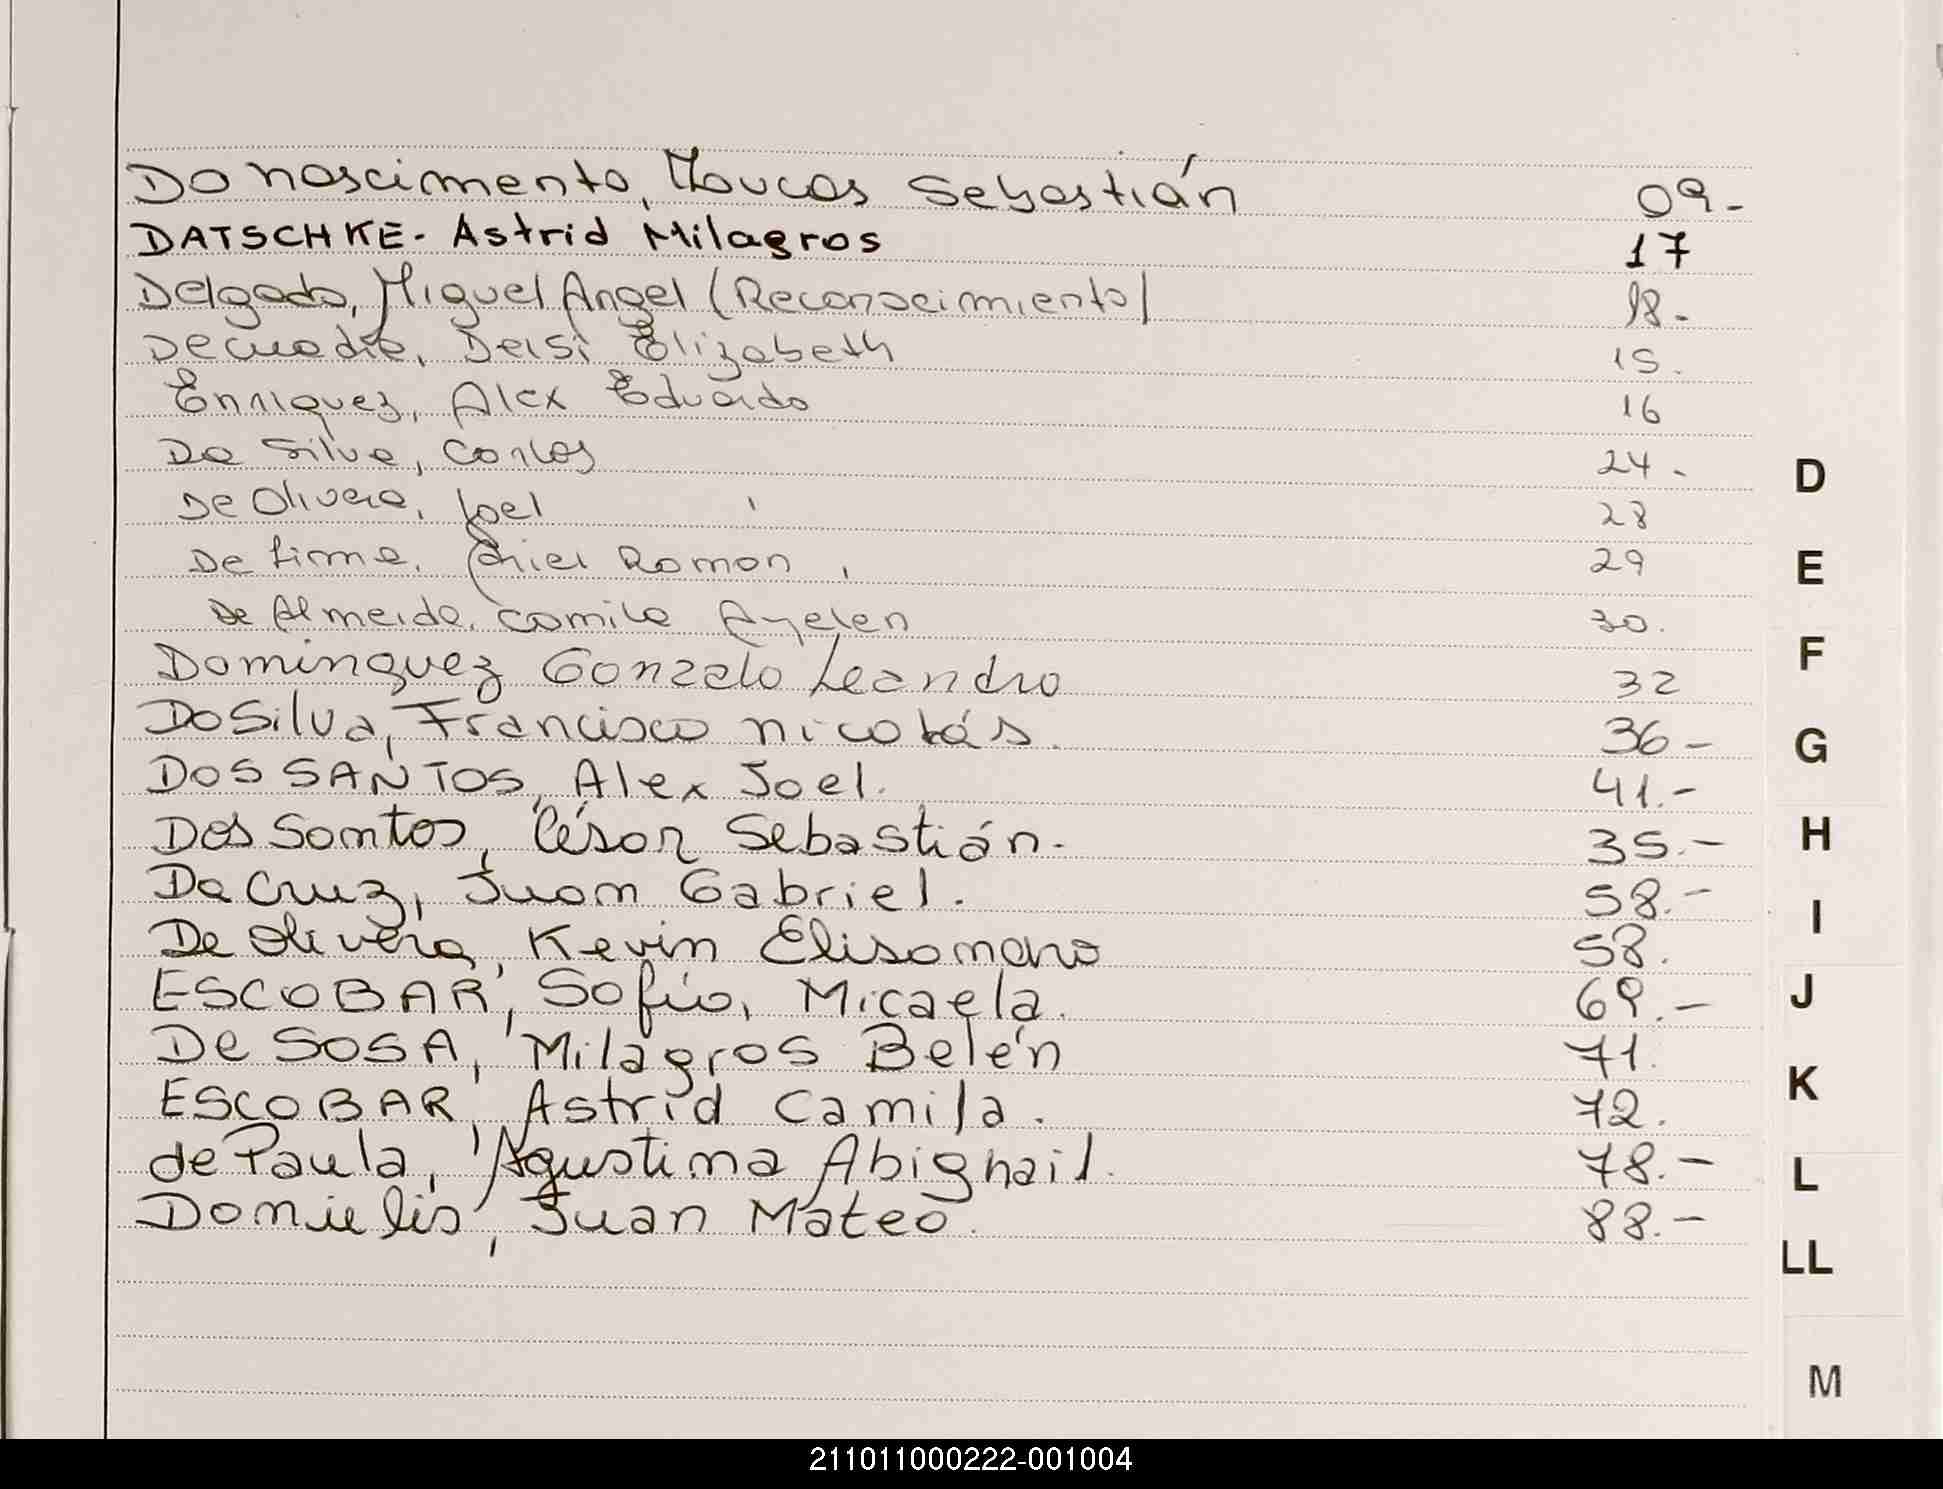 Do nascimento, Marcos Sebastián 09.-
DATSCHKE- Astrid Milagros 17
Delgado, Miguel Angel (Reconocimiento) 18.-
Deisi Elizabeth 15.
Enriquez, Alex Eduardo 16
Da Silva, Carlos 24.-
De Olivera, Joel 28
De Lima, Ariel Roman 29
De Almeida, Camila Ayelen 30.
Dominguez Gonzalo Leandro 32
Da Silva, Francisco nicolás. 36-
DOS SANTOS, Alex Joel. 41.-
Dos Santos, César Sebastián. 35.-
Da Cruz, Juan Gabriel. 58.-
De Olivera, Kevin Elisandro 58.
ESCOBAR, Sofía, Micaela. 69.-
De SOSA, Milagros Belén 71.
ESCOBAR, Astrid Camila. 72.
de Paula, Agustina Abighail. 78.-
Juan Mateo. 88.-
D
E
F
G
H
I
J
K
L
LL
M
211011000222-001004